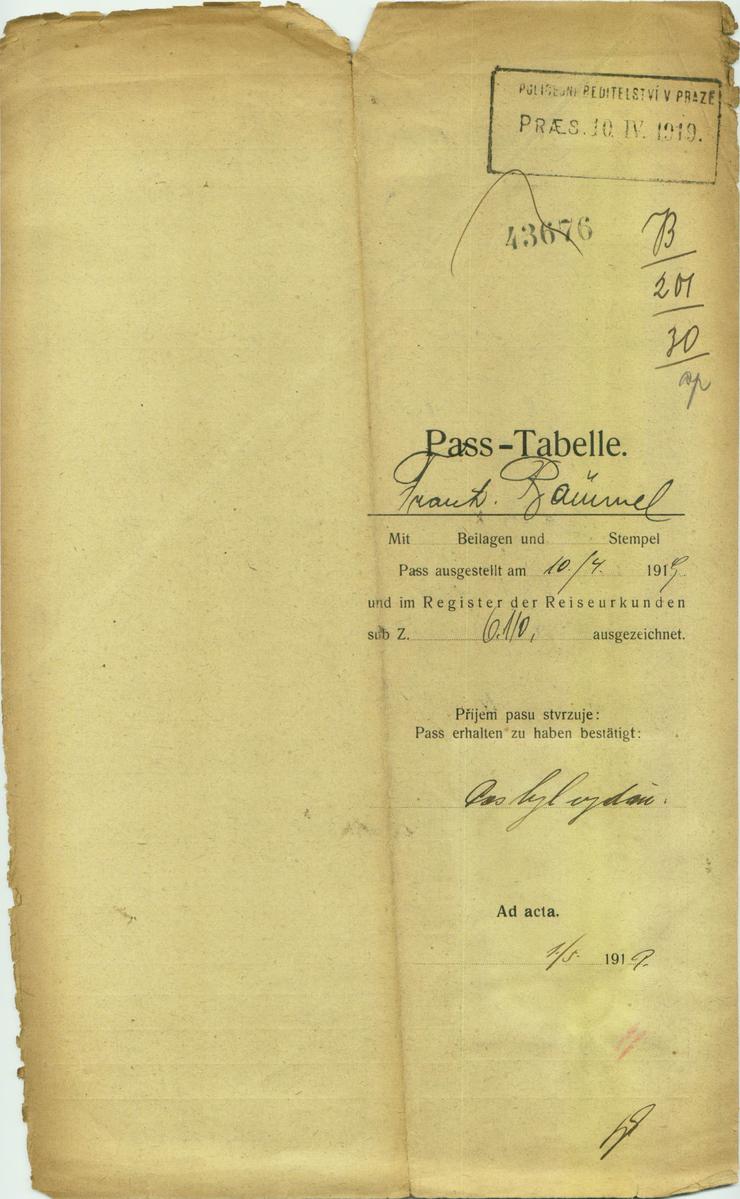 POLICEJNÍ ŘEDITELSTVÍ V PRAZE
PRÆS. 10. IV. 1919.
43676
B
201
30
Pass-Tabelle.
Frant. Bäumel
Mit Beilagen und Stempel
Pass ausgestellt am 10./4. 1919
und im Register der Reiseurkunden
sub Z. 6.110, ausgezeichnet.
Příjem pasu stvrzuje:
Pass erhalten zu haben bestätigt:
Pas byl vydán.
Ad acta.
1/5. 1919.